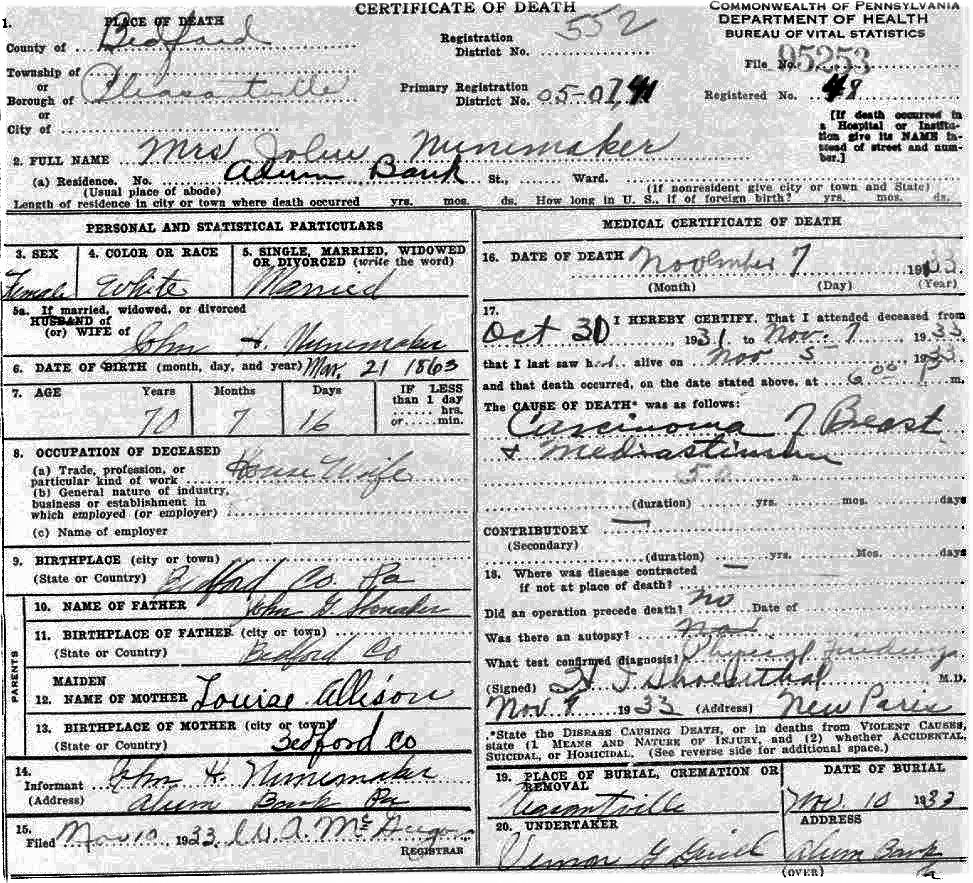 CERTIFICATE OF DEATH
COMMONWEALTH OF PENNSYLVANIA
DEPARTMENT OF HEALTH
BUREAU OF VITAL STATISTICS
1. PLACE OF DEATH
County of Bedford
Township of
or
Borough of Pleasantville
or
City of
Registration District No. 552
Primary Registration District No. 05-07-41
File No. 95253
Registered No. 48
[If death occurred in a Hospital or Institution give its NAME instead of street and number.]
2. FULL NAME Mrs John Nunemaker
(a) Residence. No. Alum Bank St., Ward.
(Usual place of abode) (If nonresident give city or town and State)
Length of residence in city or town where death occurred yrs. mos. ds. How long in U. S., if of foreign birth? yrs. mos. ds.
PERSONAL AND STATISTICAL PARTICULARS
3. SEX
Female
4. COLOR OR RACE
White
5. SINGLE, MARRIED, WIDOWED OR DIVORCED (write the word)
Married
5a. If married, widowed, or divorced
HUSBAND of
(or) WIFE of John H. Nunemaker
6. DATE OF BIRTH (month, day, and year) Mar. 21 1863
7. AGE Years Months Days IF LESS than 1 day
70 7 16 hrs. or min.
8. OCCUPATION OF DECEASED
(a) Trade, profession, or particular kind of work House Wife
(b) General nature of industry, business or establishment in which employed (or employer)
(c) Name of employer
9. BIRTHPLACE (city or town)
(State or Country) Bedford Co. Pa
PARENTS
10. NAME OF FATHER John G
11. BIRTHPLACE OF FATHER (city or town)
(State or Country) Bedford Co
12. MAIDEN NAME OF MOTHER Louise Allison
13. BIRTHPLACE OF MOTHER (city or town)
(State or Country) Bedford Co
14. Informant John H. Nunemaker
(Address) Alum Bank Pa
15. Filed Nov 10 1933. W. A. Mc
REGISTRAR
MEDICAL CERTIFICATE OF DEATH
16. DATE OF DEATH November 7 1933.
(Month) (Day) (Year)
17. I HEREBY CERTIFY, That I attended deceased from
Oct 30 1931 to Nov. 7 1933
that I last saw h alive on Nov 5 1933
and that death occurred, on the date stated above, at 6 00 P m.
The CAUSE OF DEATH* was as follows:
Carcinoma of Breast
& Mediastinum
(duration) yrs. mos. days
CONTRIBUTORY
(Secondary)
(duration) yrs. Mos. days
18. Where was disease contracted
if not at place of death?
Did an operation precede death? no Date of
Was there an autopsy? no
What test confirmed diagnosis? Physical findings
(Signed) H I Shoenthal M.D.
Nov 9 1933 (Address) New Paris
*State the DISEASE CAUSING DEATH, or in deaths from VIOLENT CAUSES, state (1 MEANS AND NATURE OF INJURY, and (2) whether ACCIDENTAL, SUICIDAL, or HOMICIDAL. (See reverse side for additional space.)
19. PLACE OF BURIAL, CREMATION OR REMOVAL
Pleasantville
DATE OF BURIAL
Nov. 10 1933
20. UNDERTAKER
Vernon G
ADDRESS
Alum Bank
Pa
(OVER)